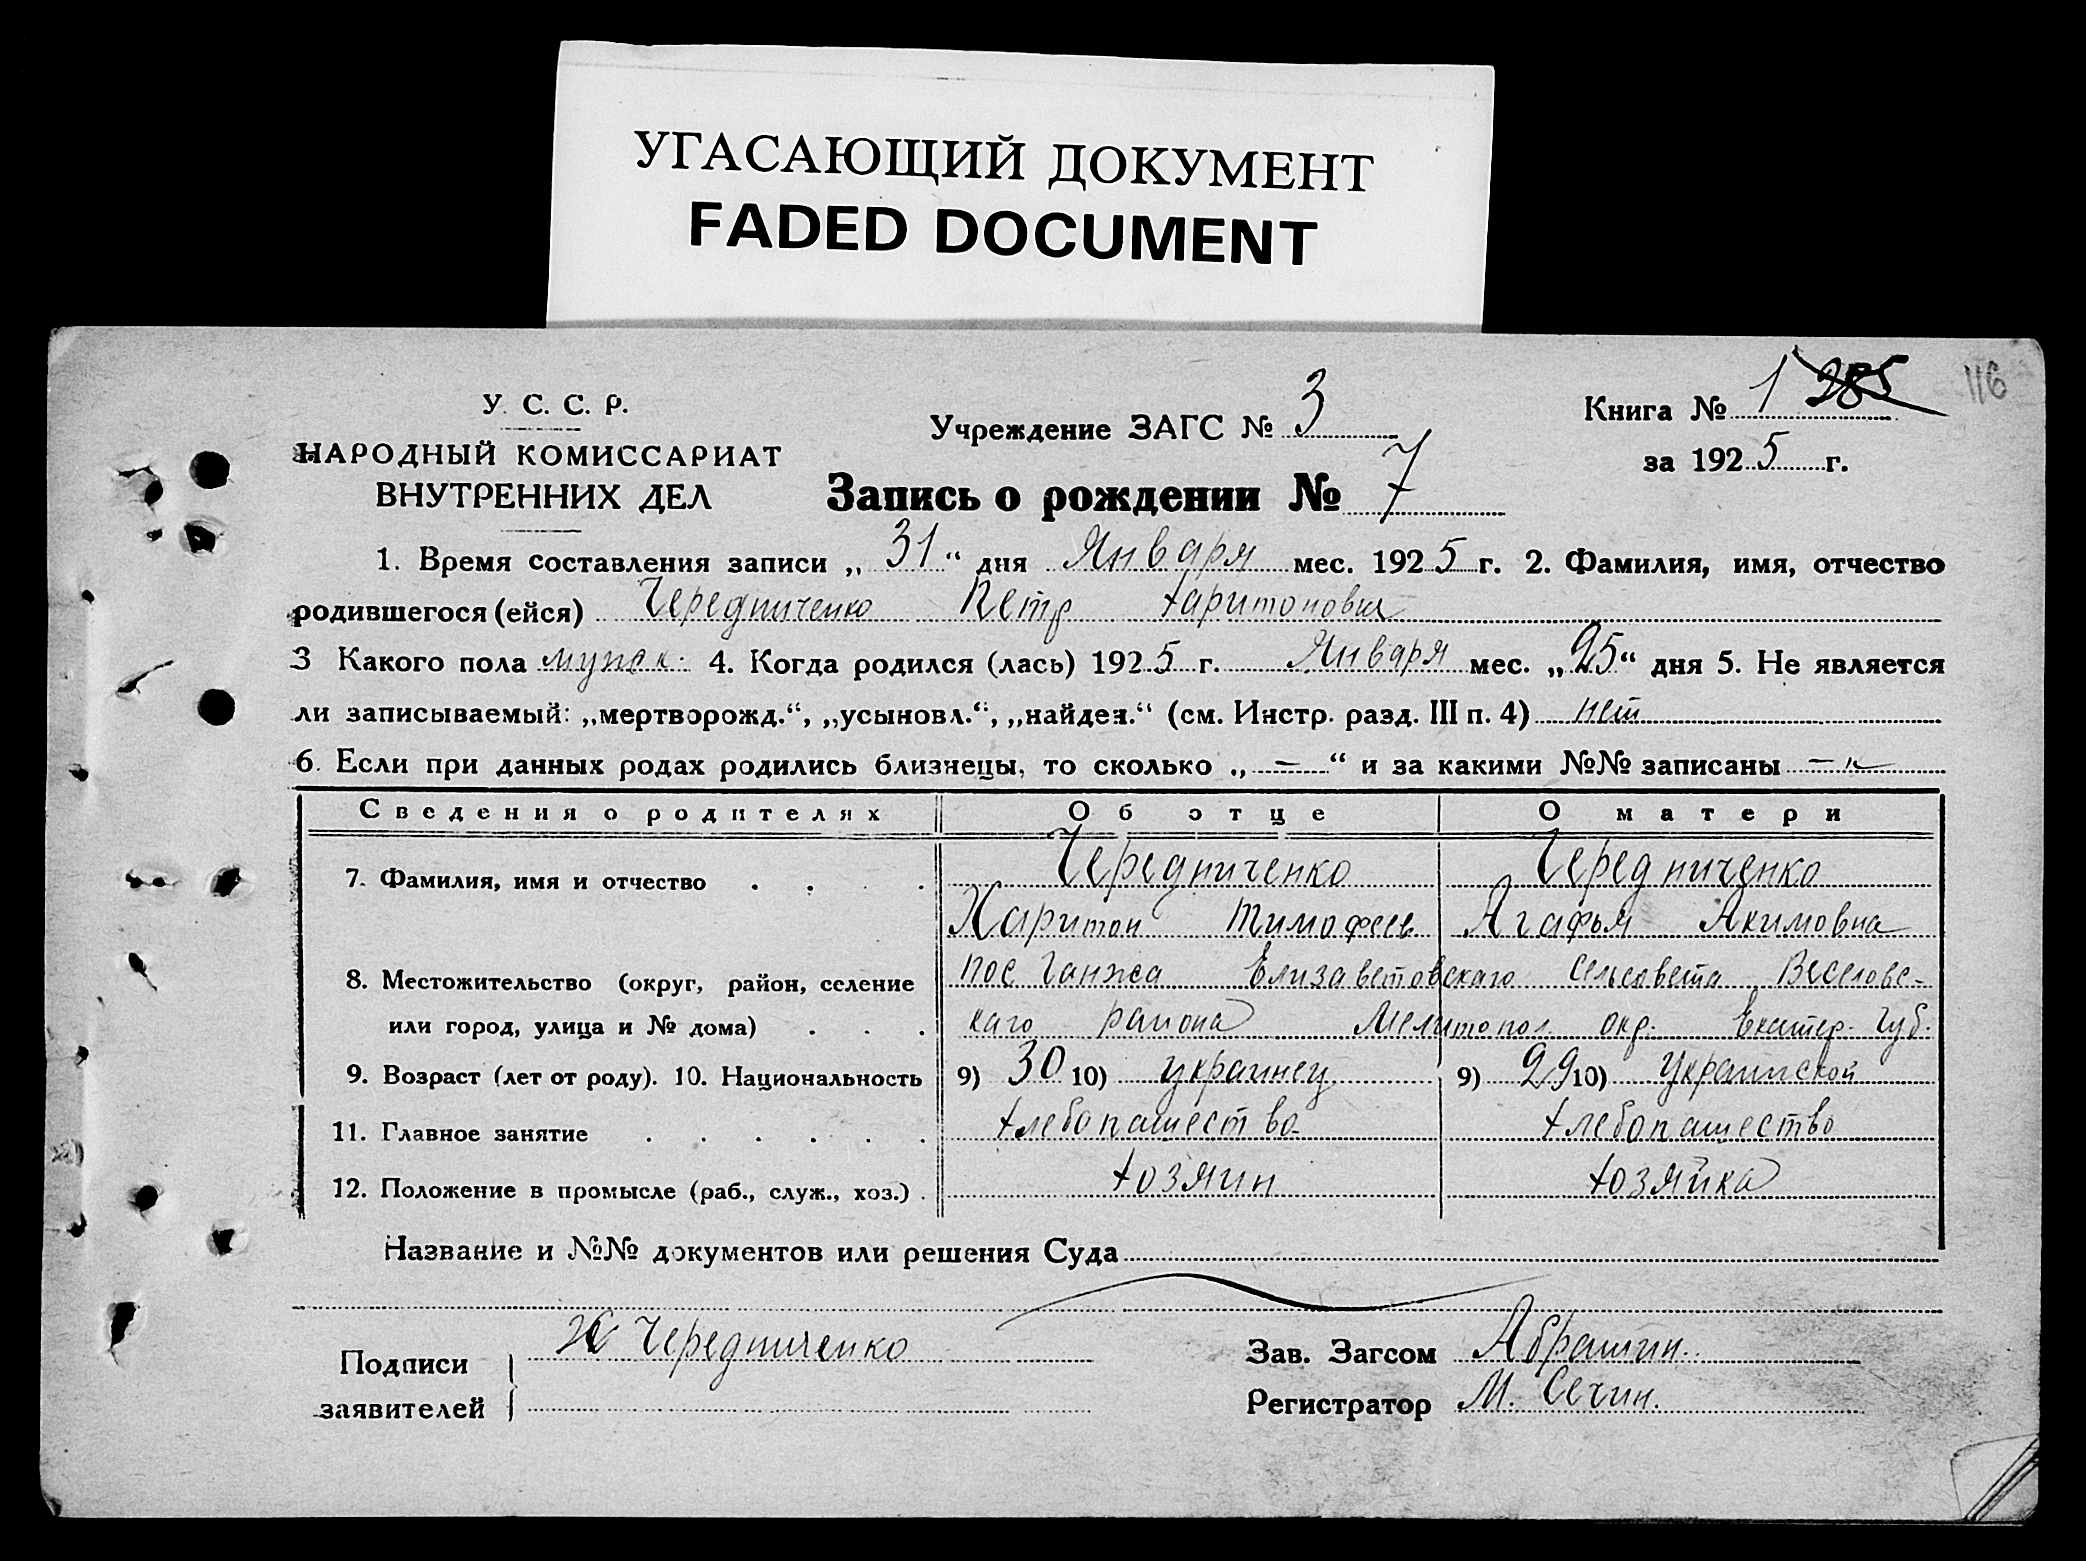 УГАСАЮЩИЙ ДОКУМЕНТ
FADED DOCUMENT
У. С. С. Р.
НАРОДНЫЙ КОМИССАРИАТ
ВНУТРЕННИХ ДЕЛ
Учреждение ЗАГС № 3
Книга № 1 285 116
за 1925 г.
Запись о рождении № 7
1. Время составления записи „31“ дня Января мес. 1925 г. 2. Фамилия, имя, отчество
родившегося (ейся) Чередниченко Петр Харитонович
3 Какого пола мужск. 4. Когда родился (лась) 1925 г. Января мес. „25“ дня 5. Не является
ли записываемый: „мертворожд.“, „усыновл.“, „найден.“ (см. Инстр. разд. III п. 4) нет
6. Если при данных родах родились близнецы, то сколько „ — “ и за какими №№ записаны —
Сведения о родителях Об отце О матери
7. Фамилия, имя и отчество . . . . Чередниченко Чередниченко
Харитон Тимофеев Агафья Якимовна
8. Местожительство (округ, район, селение пос Ганжа Елизаветовскаго сельсовета Веселовс-
или город, улица и № дома) . . . каго района Мелитопол. окр. Екатер. губ.
9. Возраст (лет от роду). 10. Национальность 9) 30 10) украинец 9) 29 10) Украинской
11. Главное занятие . . . . . . хлебопашество хлебопашество
12. Положение в промысле (раб., служ., хоз.) . хозяин хозяйка
Название и №№ документов или решения Суда
Подписи заявителей Х Чередниченко
Зав. Загсом Абрашин.
Регистратор М. Сечин.